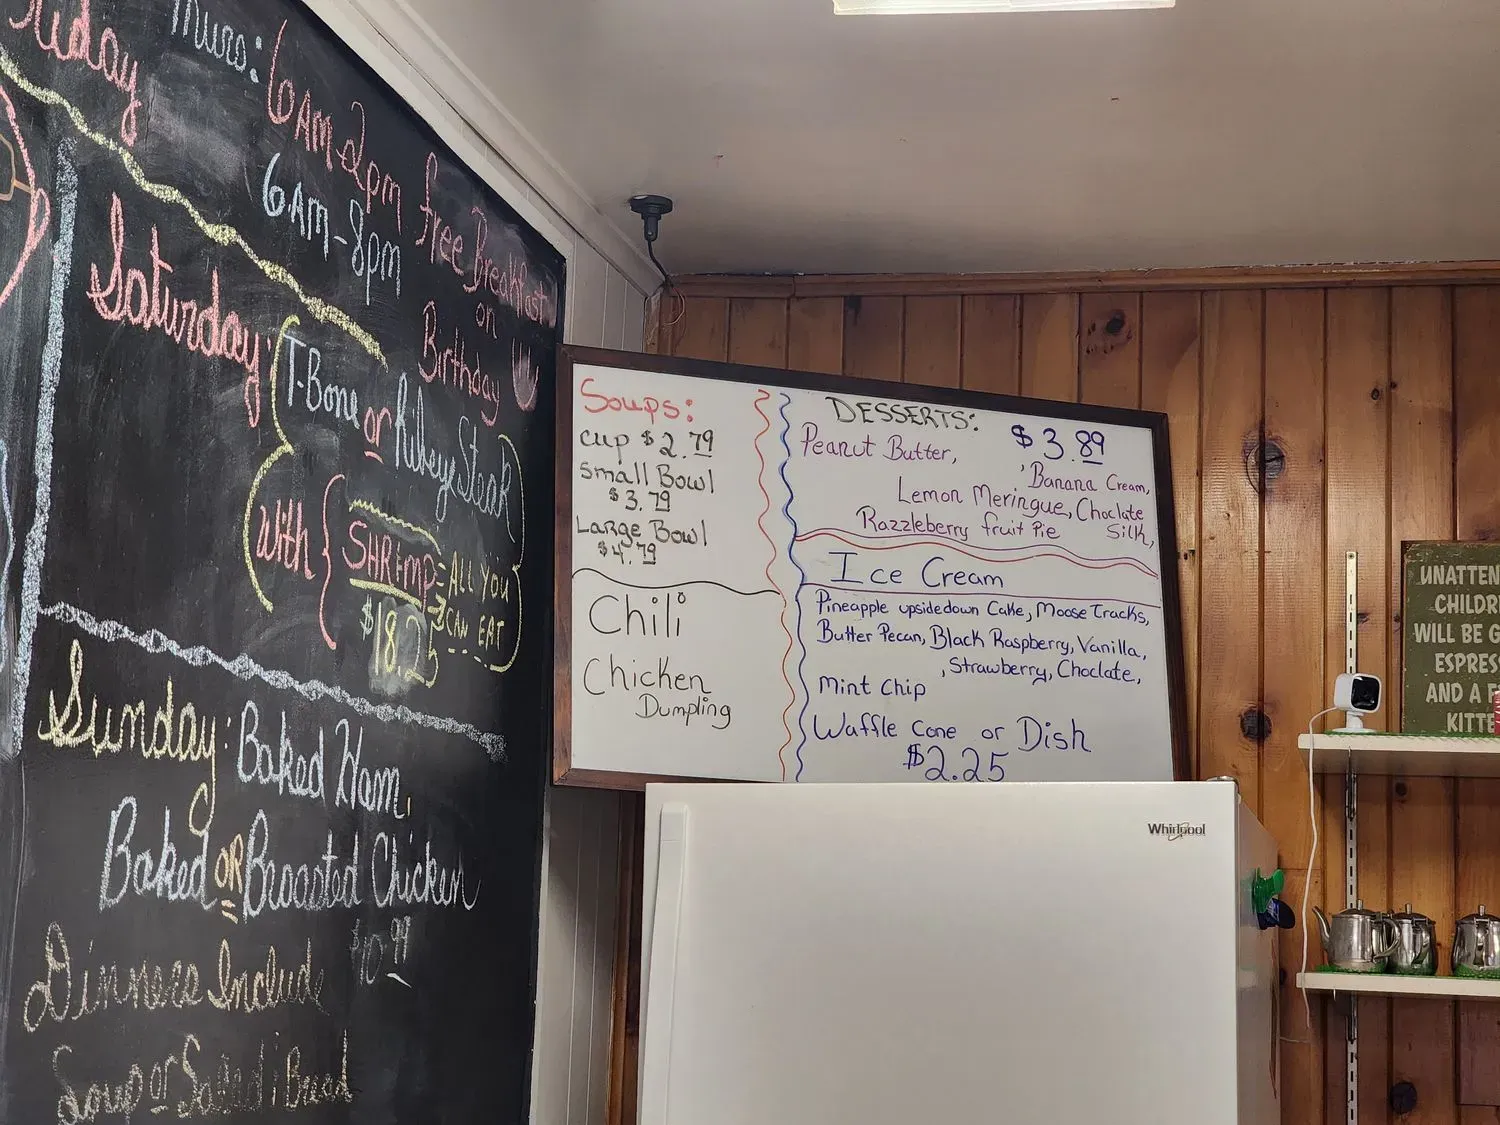 Friday
Thurs: 6AM-2pm
6AM-8pm
free Breakfast
on
Birthday
Saturday:
T-Bone or Ribeye Steak
with
SHRimp = ALL YOU
CAN EAT
$18.25
Sunday: Baked Ham,
Baked OR Broasted Chicken
$10.99
Dinners Include
Soup or Salad; Bread
Soups:
cup $2.79
Small Bowl
$3.79
Large Bowl
$4.79
Chili
Chicken
Dumpling
DESSERTS:
$3.89
Peanut Butter,
Banana Cream,
Lemon Meringue, Choclate
Silk,
Razzleberry fruit Pie
Ice Cream
Pineapple upsidedown Cake, Moose Tracks,
Butter Pecan, Black Raspberry, Vanilla,
, Strawberry, Choclate,
Mint Chip
Waffle Cone or Dish
$2.25
Whirlpool
UNATTEN
CHILDR
WILL BE G
ESPRES
AND A F
KITTE